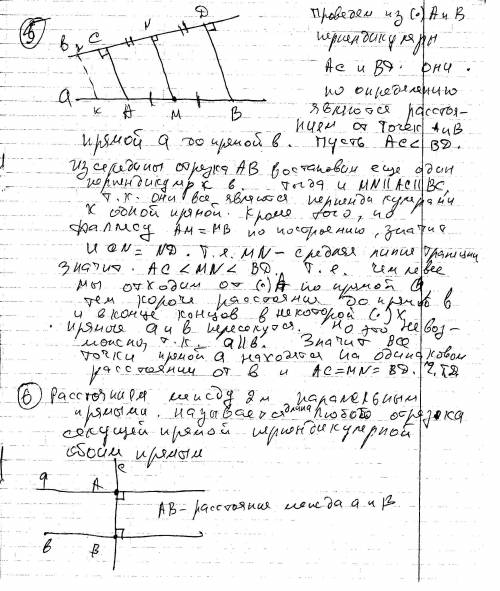 б
в C N D
а K A M B
Проведем из (•) A и B
перпендикуляры
AC и BD. Они
по определению
являются расстоя-
нием от точек A и B
прямой а до прямой в. Пусть AC < BD.
из середины отрезка AB востановим еще один
перпендикуляр к в. Тогда и MN || AC || BC,
т.к. они все являются перпендикулярами
к одной прямой. Кроме того, по
фалесу AM = MB по построению, значит
и CN = ND. Т.е. MN - средняя линия трапеции
значит AC < MN < BD. Т.е. чем левее
мы отходим от (•) A по прямой a
тем короче расстояние до прямой в
и в конце концов в некоторой (•) X
прямые а и в пересекутся. Но это невоз-
можно, т.к. а||в. Значит все
точки прямой а находятся на одинаковом
расстоянии от в и AC = MN = BD. Ч.Т.Д
в Расстоянием между 2м паралельным
прямыми называется длина любого отрезка
секущей прямой перпендикулярной
обоим прямым
c
а A
AB - расстояние между а и в
в B